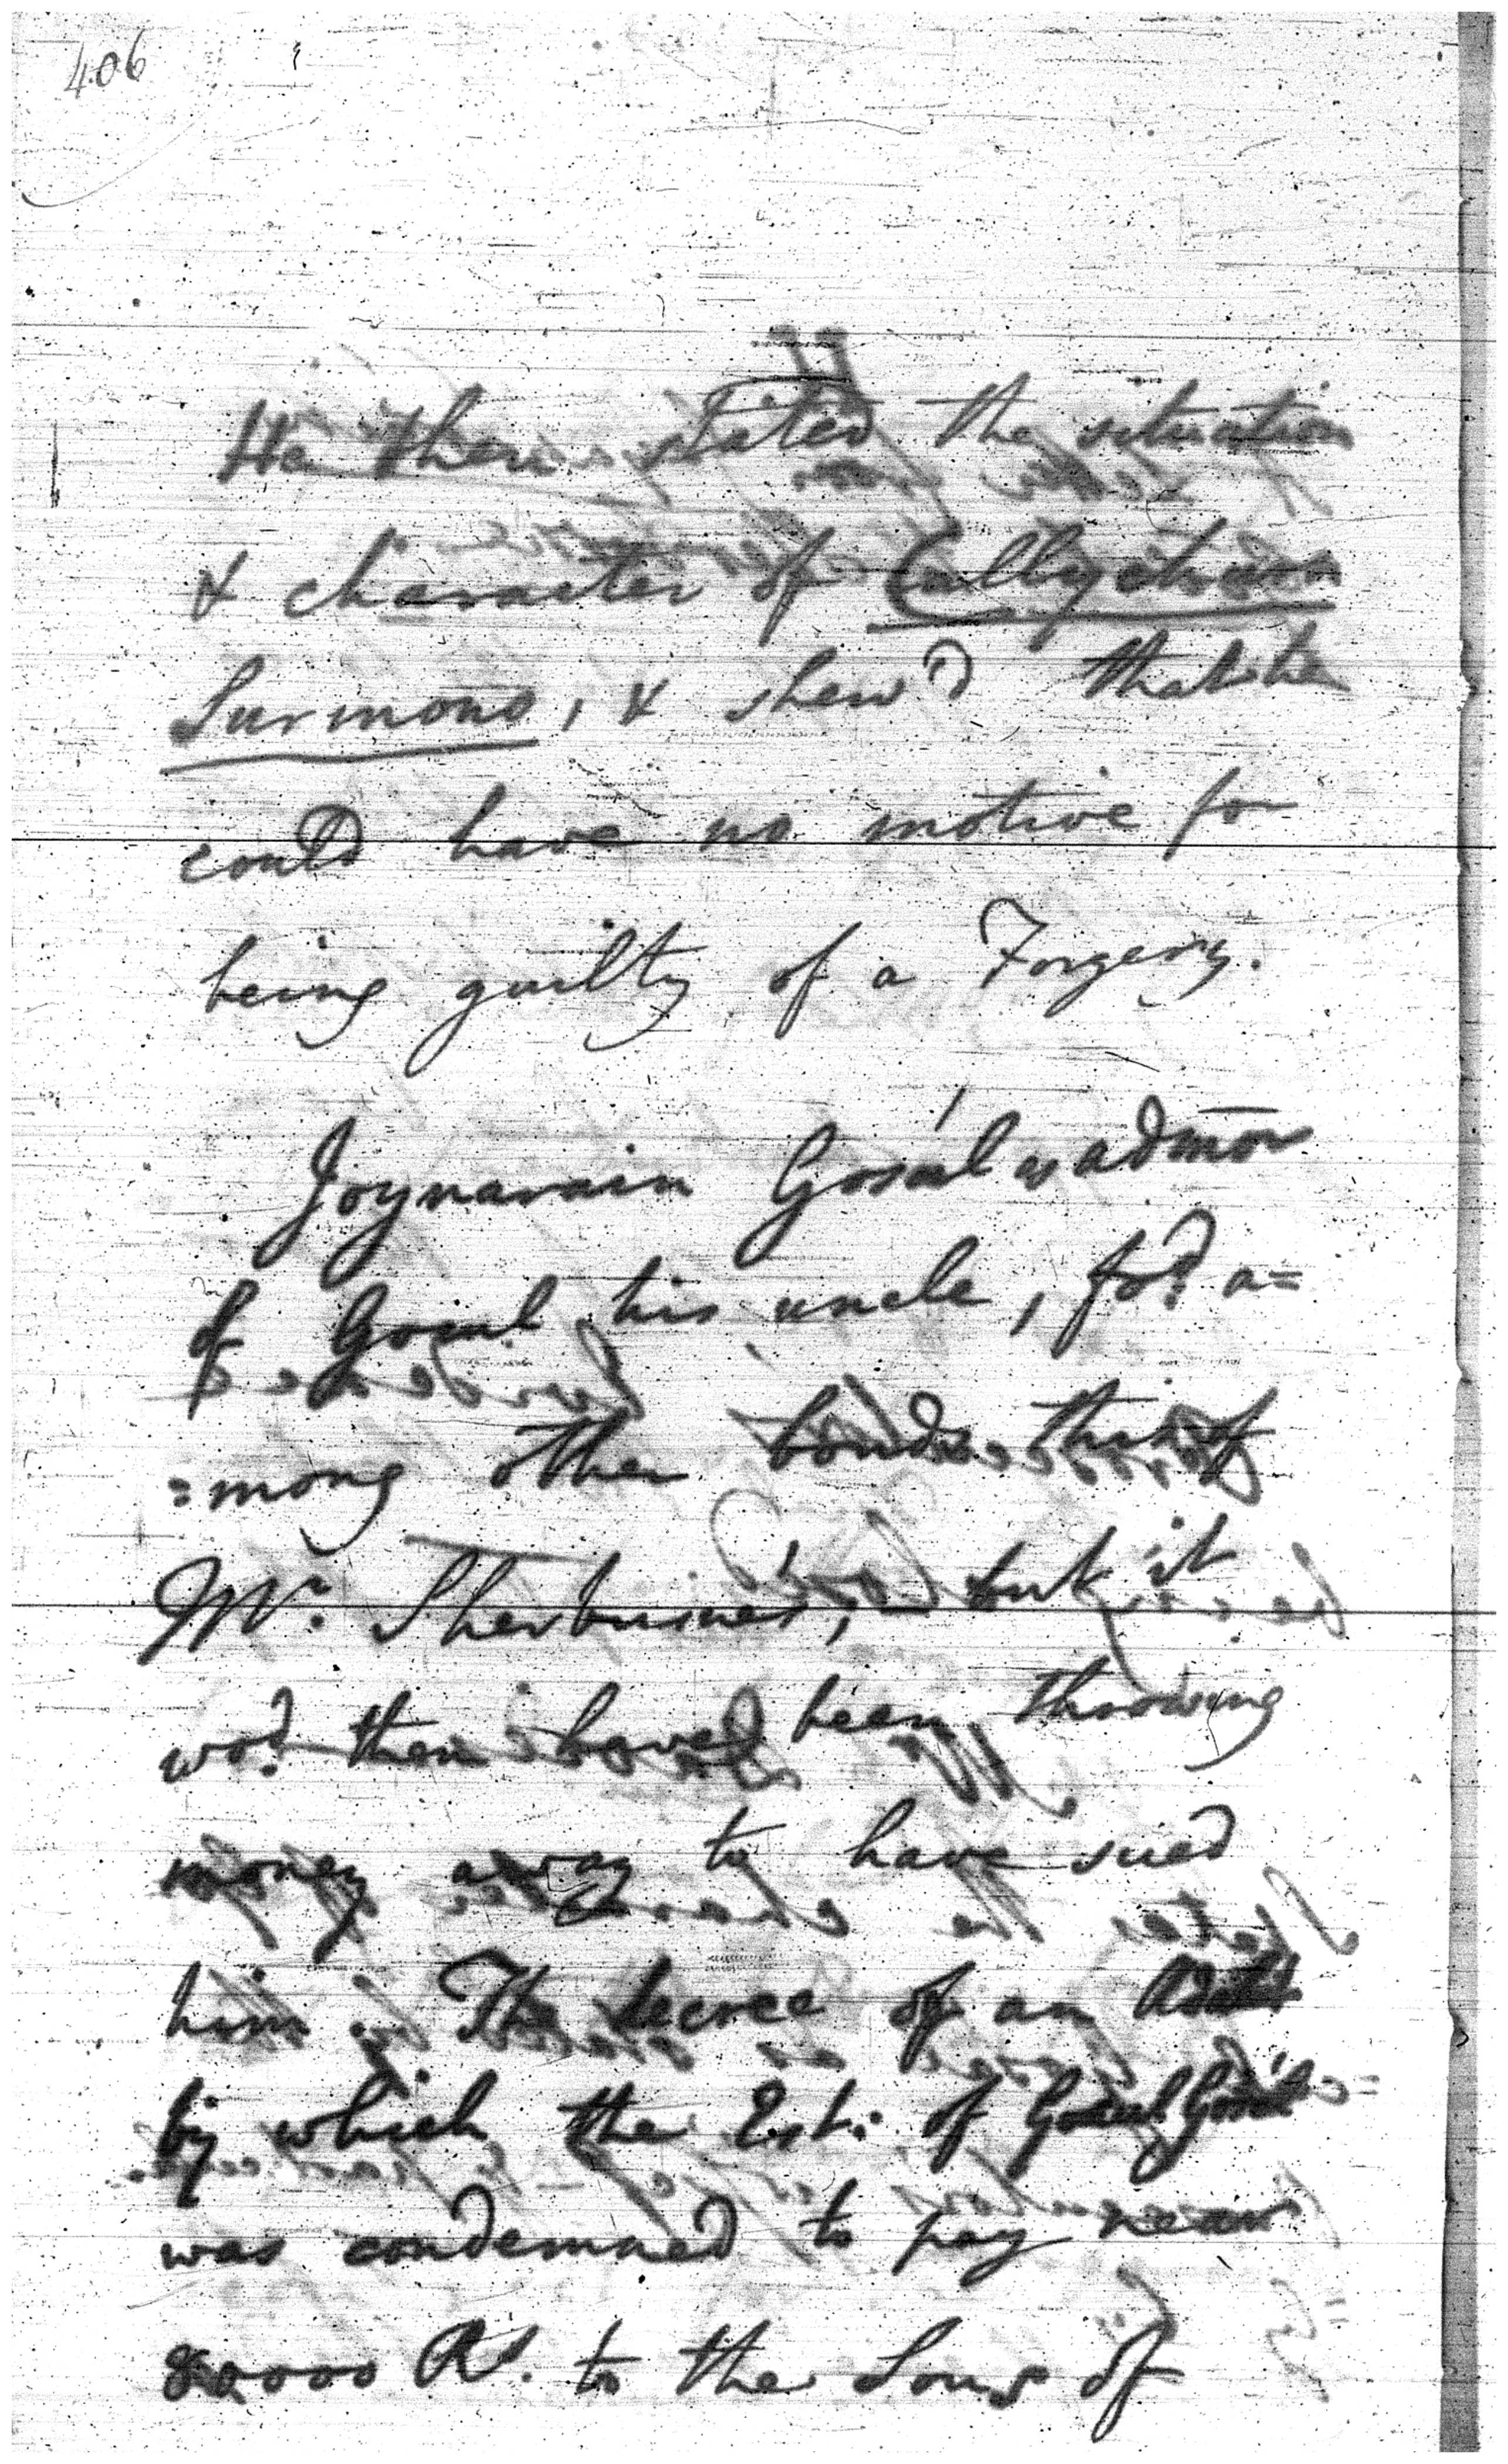 406
He then stated the situation
& character of Cally churn
Surmono, & shew'd that he
could have no motive for
being guilty of a Forgery.
Joynarain Gosál is admōr
of Gocul his uncle, fo.d a=
=mong other bonds this of
Mr. Sherburnes, but it
wo.d then have been throwing
money away to have sued
him. The decree of an
by which the Est: of Gocul Gosál
was condemned to pay near
80,000 Rs. to the Sons of